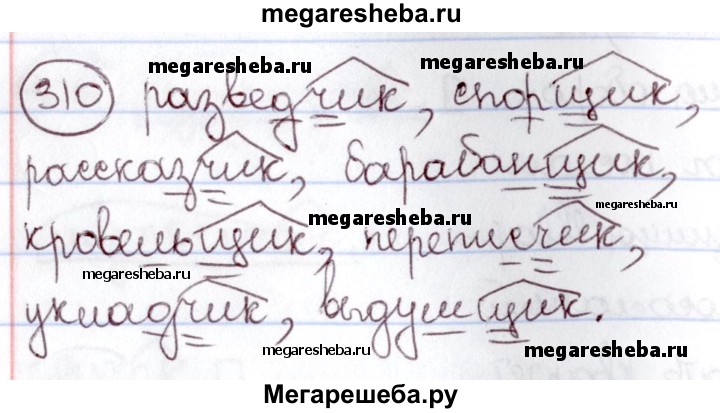 megaresheba.ru
megaresheba.ru megaresheba.ru
310 разведчик, спорщик,
рассказчик, барабанщик,
megaresheba.ru
megaresheba.ru
кровельщик, переписчик,
megaresheba.ru
укладчик, выдумщик.
megaresheba.ru megaresheba.ru
Мегарешеба.ру